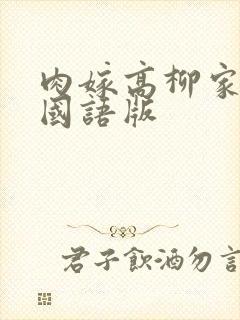 肉嫁高柳家
國語版
君子飲酒勿言